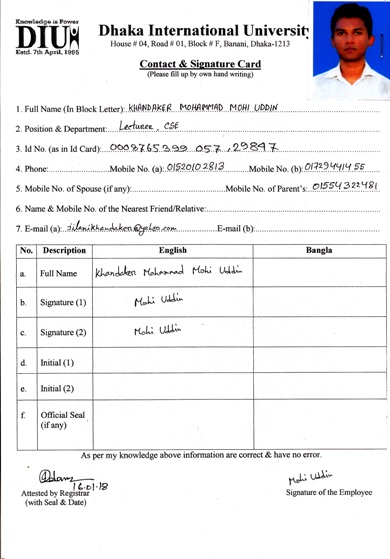 Knowledge is Power
DIU
Estd. 7th April, 1995
Dhaka International University
House # 04, Road # 01, Block # F, Banani, Dhaka-1213
Contact & Signature Card
(Please fill up by own hand writing)
1. Full Name (In Block Letter): KHANDAKER MOHAMMAD MOHI UDDIN
2. Position & Department: Lecturer, CSE
3. Id No. (as in Id Card): 0008765399 057,29847
4. Phone: Mobile No. (a): 01520102813 Mobile No. (b): 01729441455
5. Mobile No. of Spouse (if any): Mobile No. of Parent's: 01554322481
6. Name & Mobile No. of the Nearest Friend/Relative:
7. E-mail (a): jilanikhandaker@yahoo.com E-mail (b):
No. Description English Bangla
a. Full Name Khandaker Mohammad Mohi Uddin
b. Signature (1) Mohi Uddin
c. Signature (2) Mohi Uddin
d. Initial (1)
e. Initial (2)
f. Official Seal
(if any)
As per my knowledge above information are correct & have no error.
16.01.18
Mohi Uddin
Attested by Registrar
(with Seal & Date)
Signature of the Employee